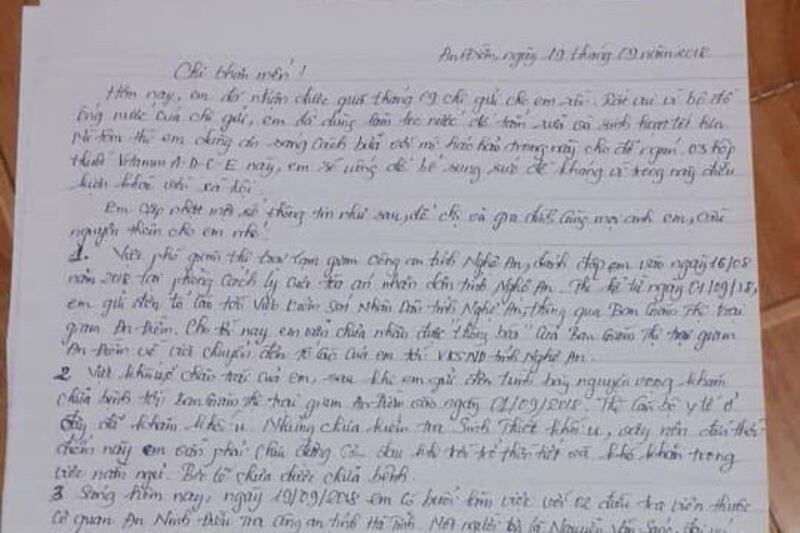 An Điềm, ngày 19 tháng 09 năm 2018
Chị thân mến!
Hôm nay, em đã nhận được quà tháng 09 chị gửi cho em rồi. Rất vui vì bộ đồ
ống nước của chị gửi, em đã dùng làm lọc nước để tắm rửa và sinh hoạt tốt hơn
Mì tôm thì em dùng ăn sáng cách bữa với mì hảo hảo trong này cho đỡ ngán. 03 hộp
thuốc Vitamin A-D-C-E này, em sẽ uống để bổ sung sức đề kháng vì trong này điều
kiện khác với xã hội.
Em cập nhật một số thông tin như sau, để chị và gia đình cùng mọi anh em, cầu
nguyện thêm cho em nhé!
1. Việc phó giám thị trại tạm giam công an tỉnh Nghệ An, đánh đập em vào ngày 16/08
năm 2018 tại phòng cách ly của tòa án nhân dân tỉnh Nghệ An. Thì kể từ ngày 01/09/18,
em gửi đơn tố cáo tới Viện Kiểm sát Nhân Dân tỉnh Nghệ An, thông qua Ban Giám Thị trại
giam An-Điềm. Cho tới nay em vẫn chưa nhận được "thông báo" của Ban Giám Thị trại giam
An-Điềm về việc chuyển đơn tố cáo của em tới VKSND tỉnh Nghệ An.
2 Việc khối u ở chân trái của em, sau khi em gửi đơn trình bày nguyện vọng khám
chữa bệnh tới ban Giám thị trại giam An-Điềm vào ngày 01/09/2018. Thì Cán bộ y tế ở
đây đã khám khối u. Nhưng chưa kiểm tra Sinh Thiết khối u, vậy nên đến thời
điểm này em vẫn phải chịu đựng cơn đau khi trời trở thời tiết và khó khăn trong
việc nằm ngủ. Bởi lẽ chưa được chữa bệnh.
3 Sáng hôm nay, ngày 19/09/2018 em có buổi làm việc với 02 điều tra viên thuộc
Cơ quan An Ninh Điều Tra Công an tỉnh Hà Tĩnh. Một người là Nguyễn Văn